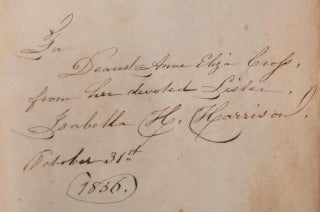 To
Dearest Anne Eliza Cross,
from her devoted Sister,
Isabella H. Harrison.
October 31st
1856.